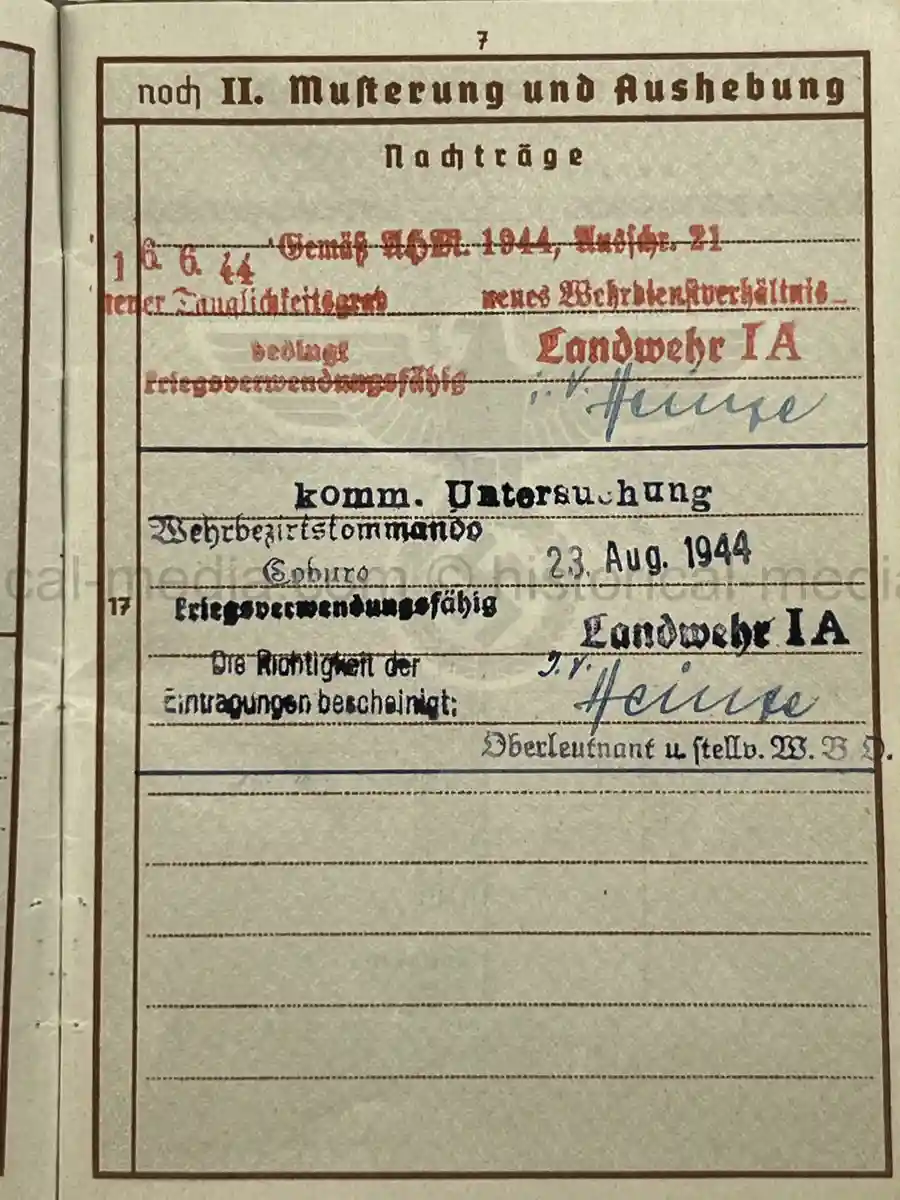 7
noch II. Musterung und Aushebung
Nachträge
16. 6. 44 Gemäß AHM. 1944, Ausschr. 21
neuer Tauglichkeitsgrad neues Wehrdienstverhältnis
bedingt Landwehr I A
kriegsverwendungsfähig i. V. Heinze
komm. Untersuchung
Wehrbezirkskommando
Coburg 23. Aug. 1944
17 kriegsverwendungsfähig
Landwehr I A
Die Richtigkeit der J. V.
Eintragungen bescheinigt: Heinze
Oberleutnant u. stellv. W. B O.
cal-media.com © historical-media